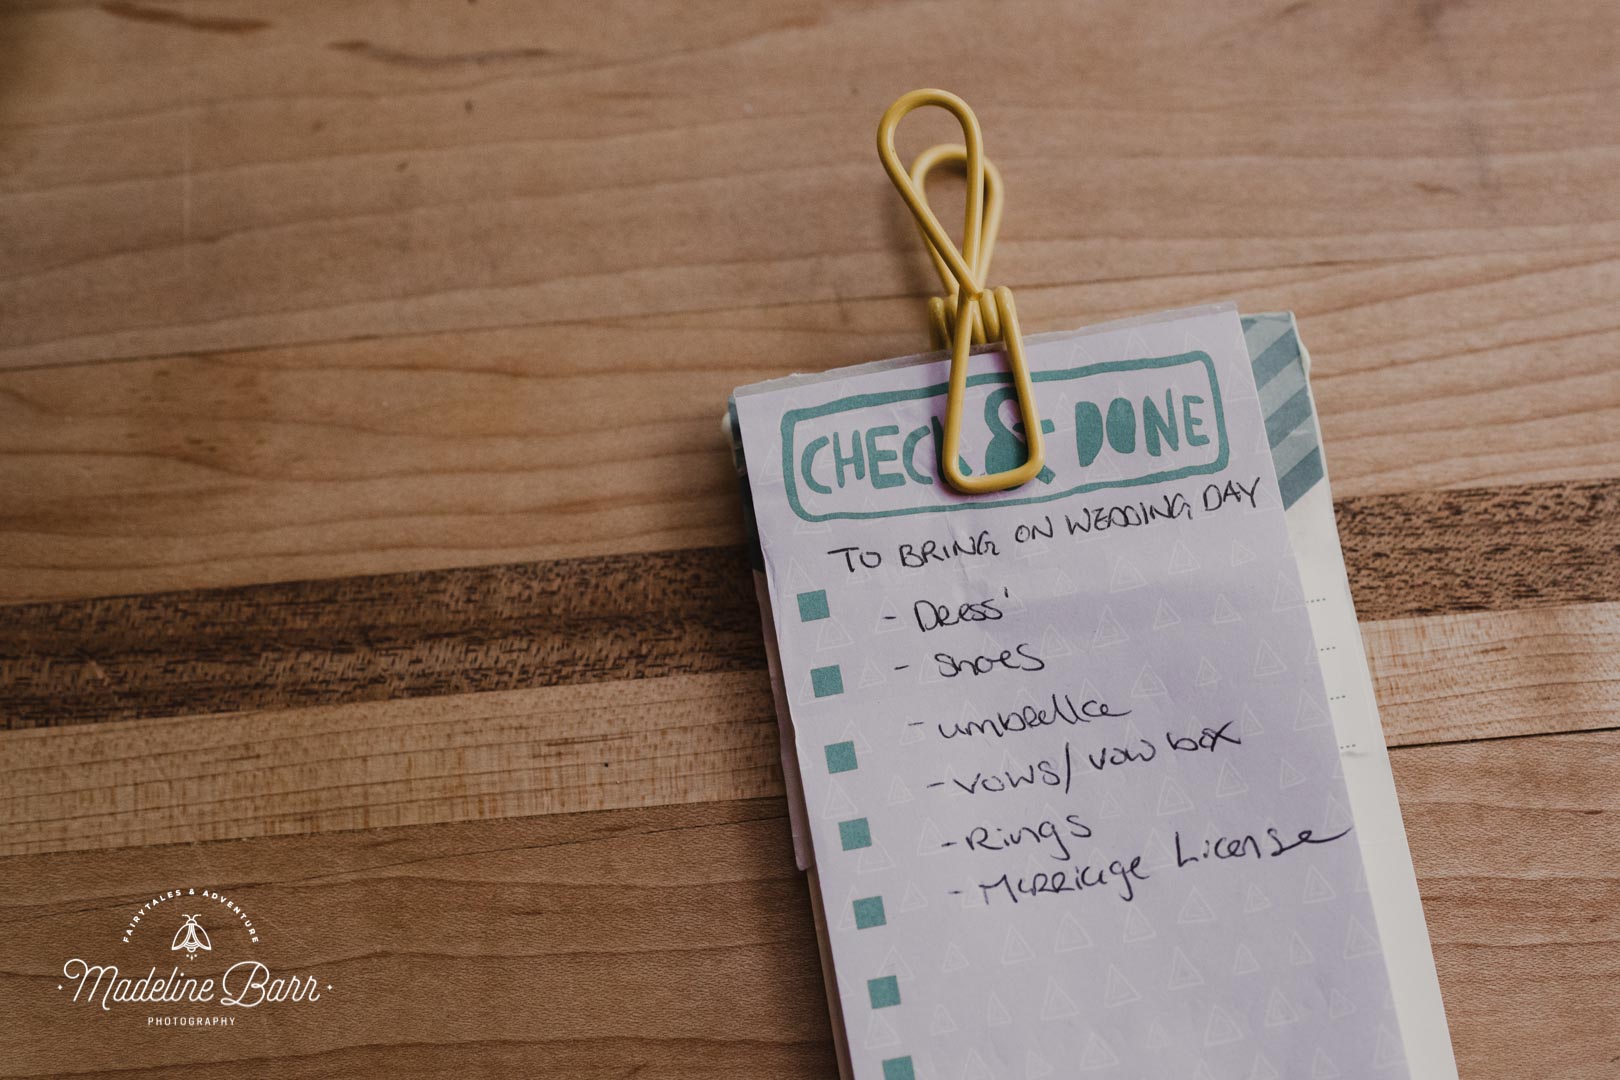 CHECK & DONE
TO BRING ON WEDDING DAY
- Dress'
- shoes
- umbrella
- vows/ vow box
- Rings
- Marriage License
FAIRYTALES & ADVENTURE
Madeline Barr
PHOTOGRAPHY